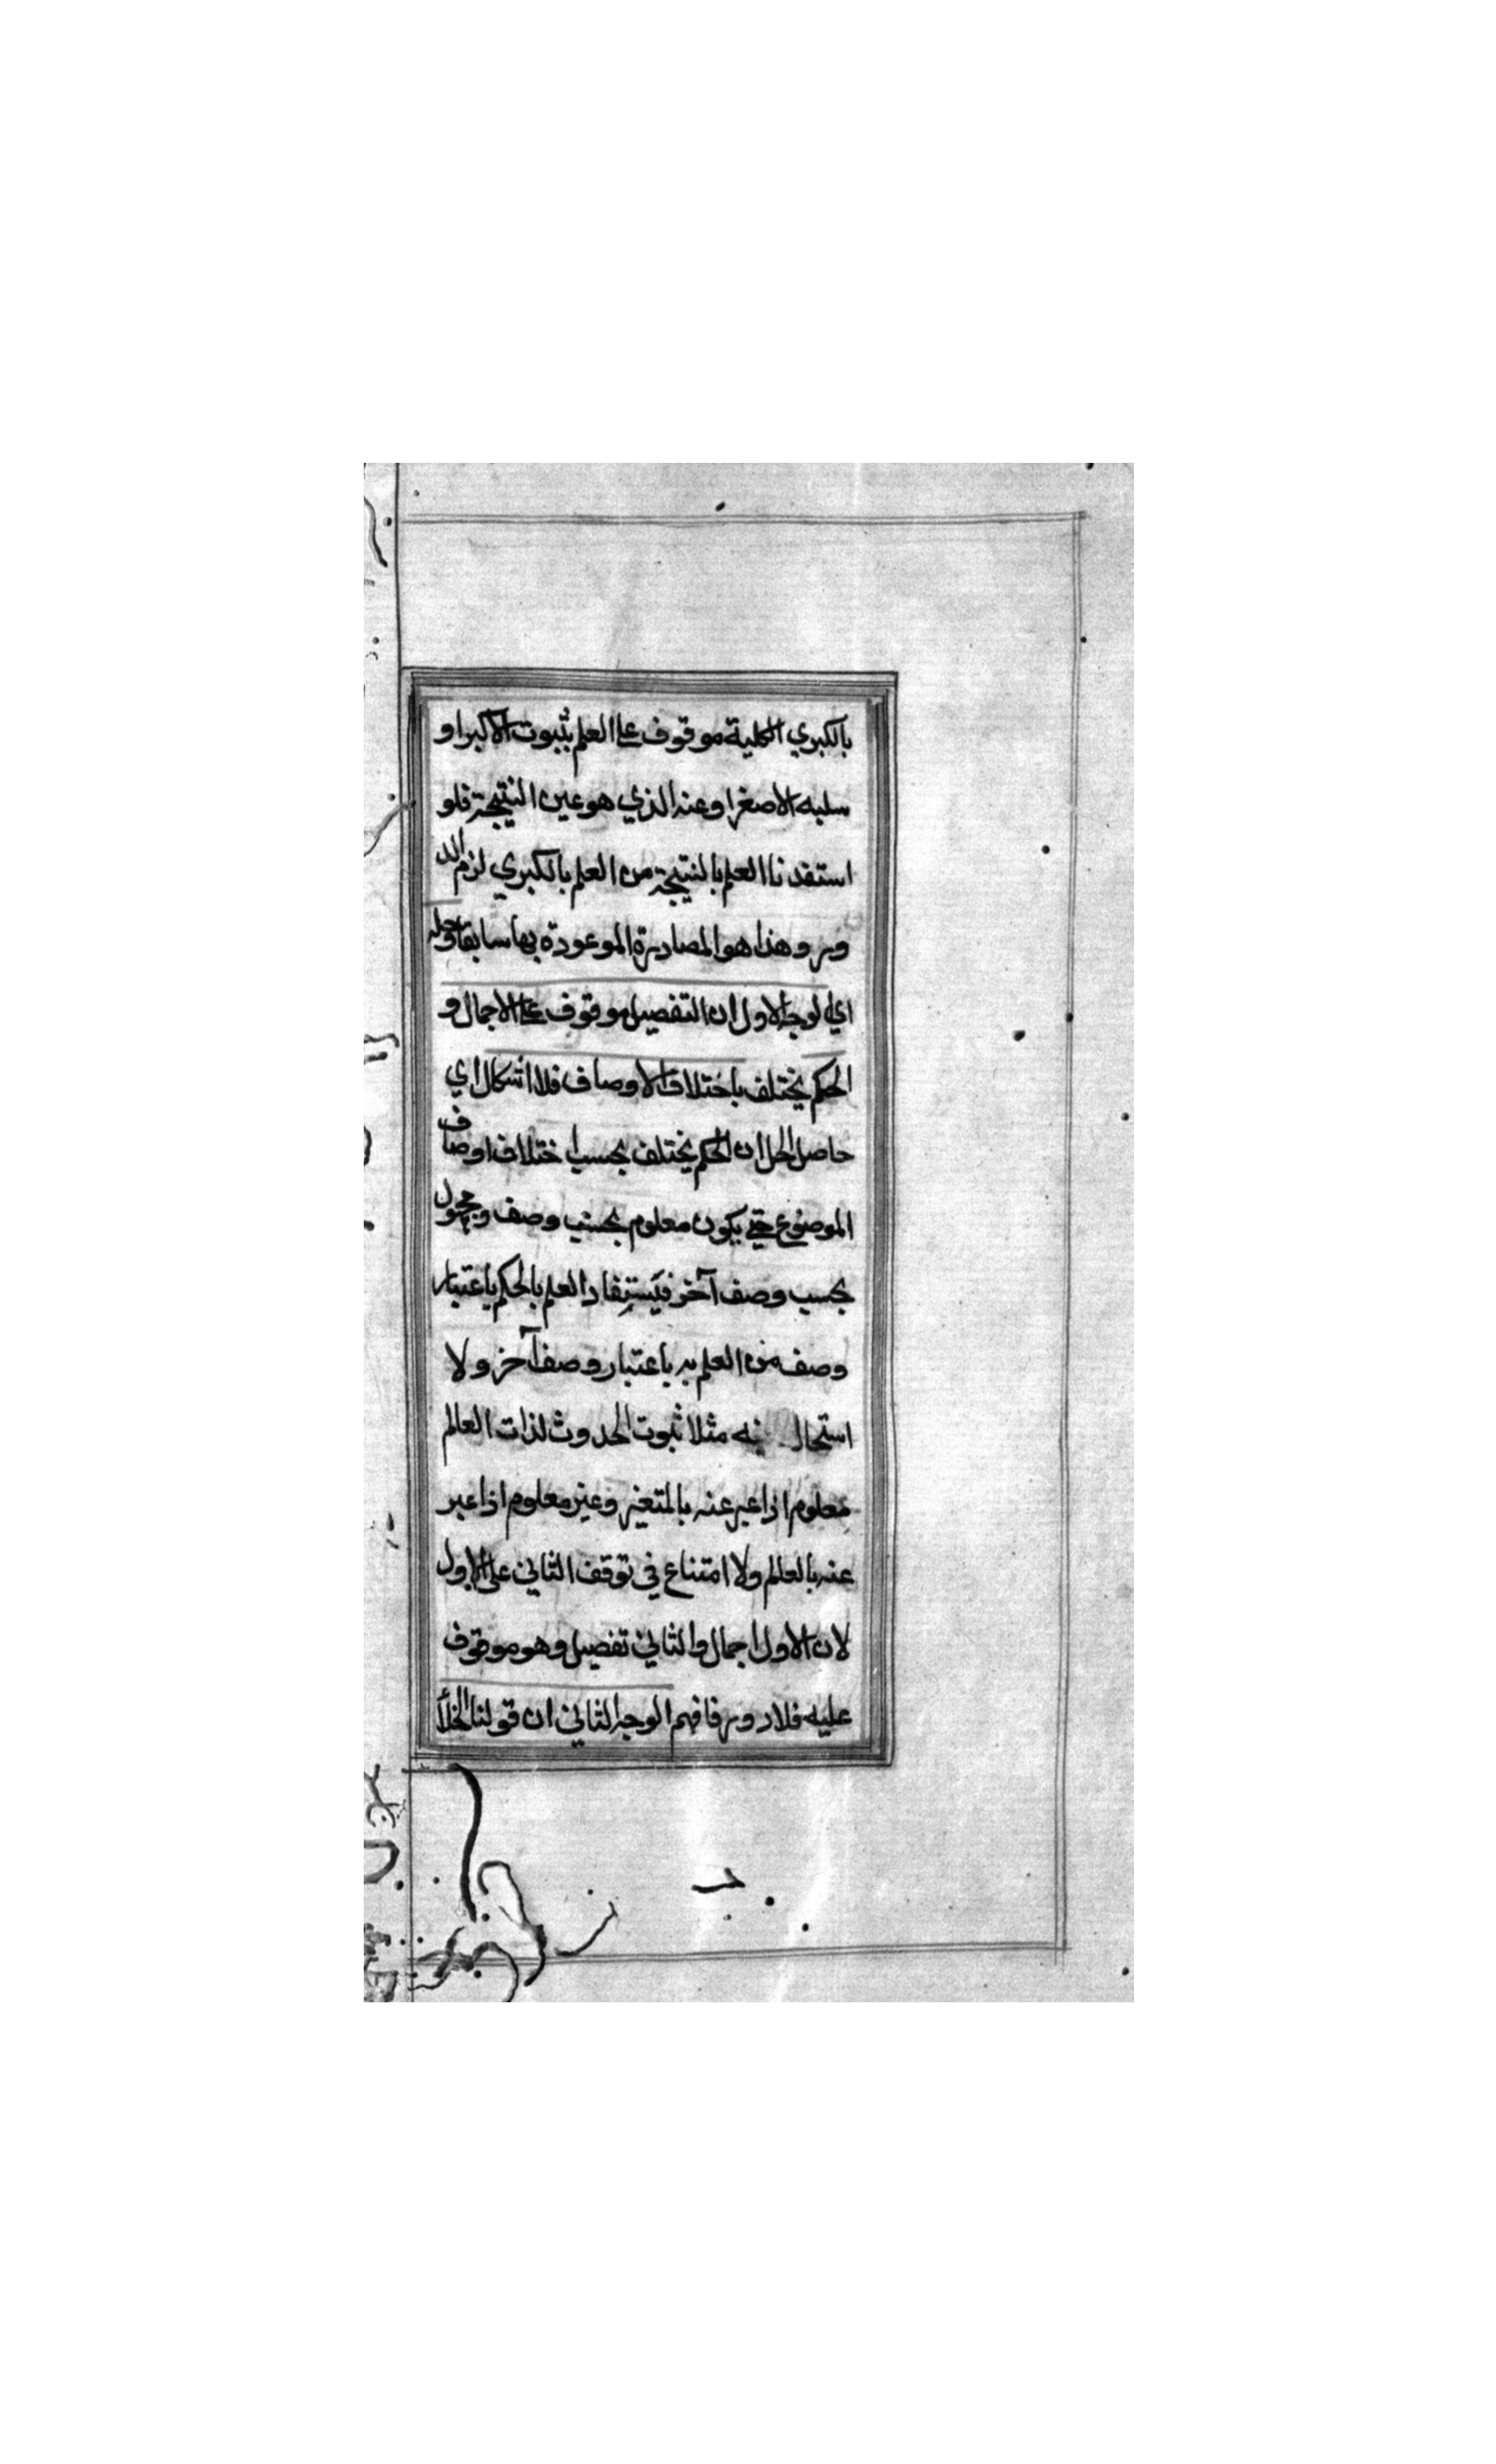 بالكبري الكلية موقوف علي العلم بثبوت الاكبر او
سلبه الاصغر او عنه الذي هو عين النتيجة فلو
استفدنا العلم بالنتيجة من العلم بالكبري لزم الد
ور وهذا هو المصادرة الموعودة بها سابقا وحله
اي الوجه الاول ان التفصيل موقوف علي الاجمال و
الحكم يختلف باختلاف الاوصاف فلا اشكال اي
حاصل الحل ان الحكم يختلف بحسب اختلاف اوصاف
الموضوع حتي يكون معلوم بحسب وصف ومجهول
بحسب وصف آخر فيستفاد العلم بالحكم باعتبار
وصف من العلم به باعتبار وصف آخر ولا
فيه مثلا ثبوت الحدوث لذات العالم
معلوم اذا عبر عنه بالمتغير وغير معلوم اذا عبر
عنه بالعالم ولا امتناع في توقف الثاني علي الاول
لان الاول اجمال والثاني تفصيل وهو موقوف
عليه فلا دور فافهم الوجه الثاني ان قولنا الخلأ